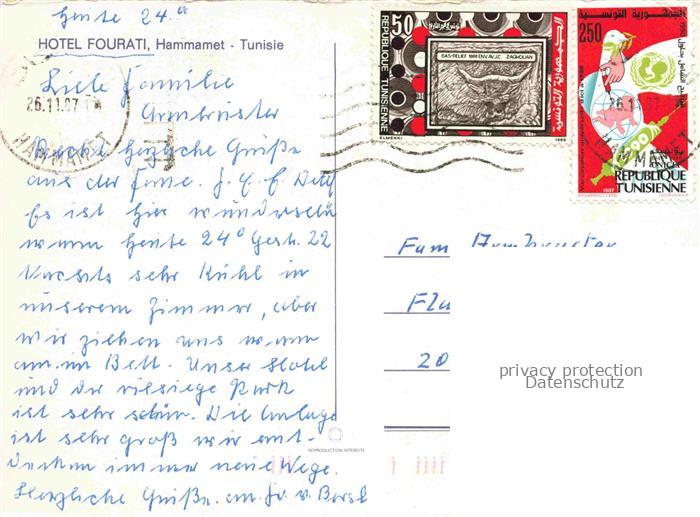 heute 24.°
HOTEL FOURATI, Hammamet - Tunisie
Liebe Familie
Armbruster
Recht herzliche Grüße
aus der Ferne. J. G. E. Dett
Es ist hier wunderschö
warm heute 24° Gest. 22
Nachts sehr Kühl in
unserem Zimmer, aber
wir ziehen uns warm
an im Bett. Unser Hotel
und der riesige Park
ist sehr schön. Die Anlage
ist sehr groß wir ent-
decken immer neue Wege.
Herzliche Grüße
26.11.87
HAMMAMET
50
REPUBLIQUE TUNISIENNE
BAS-RELIEF 1000 ENV. AV. J.C. ZAGHOUAN
الجمهورية التونسية
ELMEKKI
1986
الجمهورية التونسية
250
1990
unicef
REPUBLIQUE
TUNISIENNE
1987
26.11.87
HAMMAMET
Fam Armbruster
Flu
20
privacy protection
Datenschutz
REPRODUCTION INTERDITE